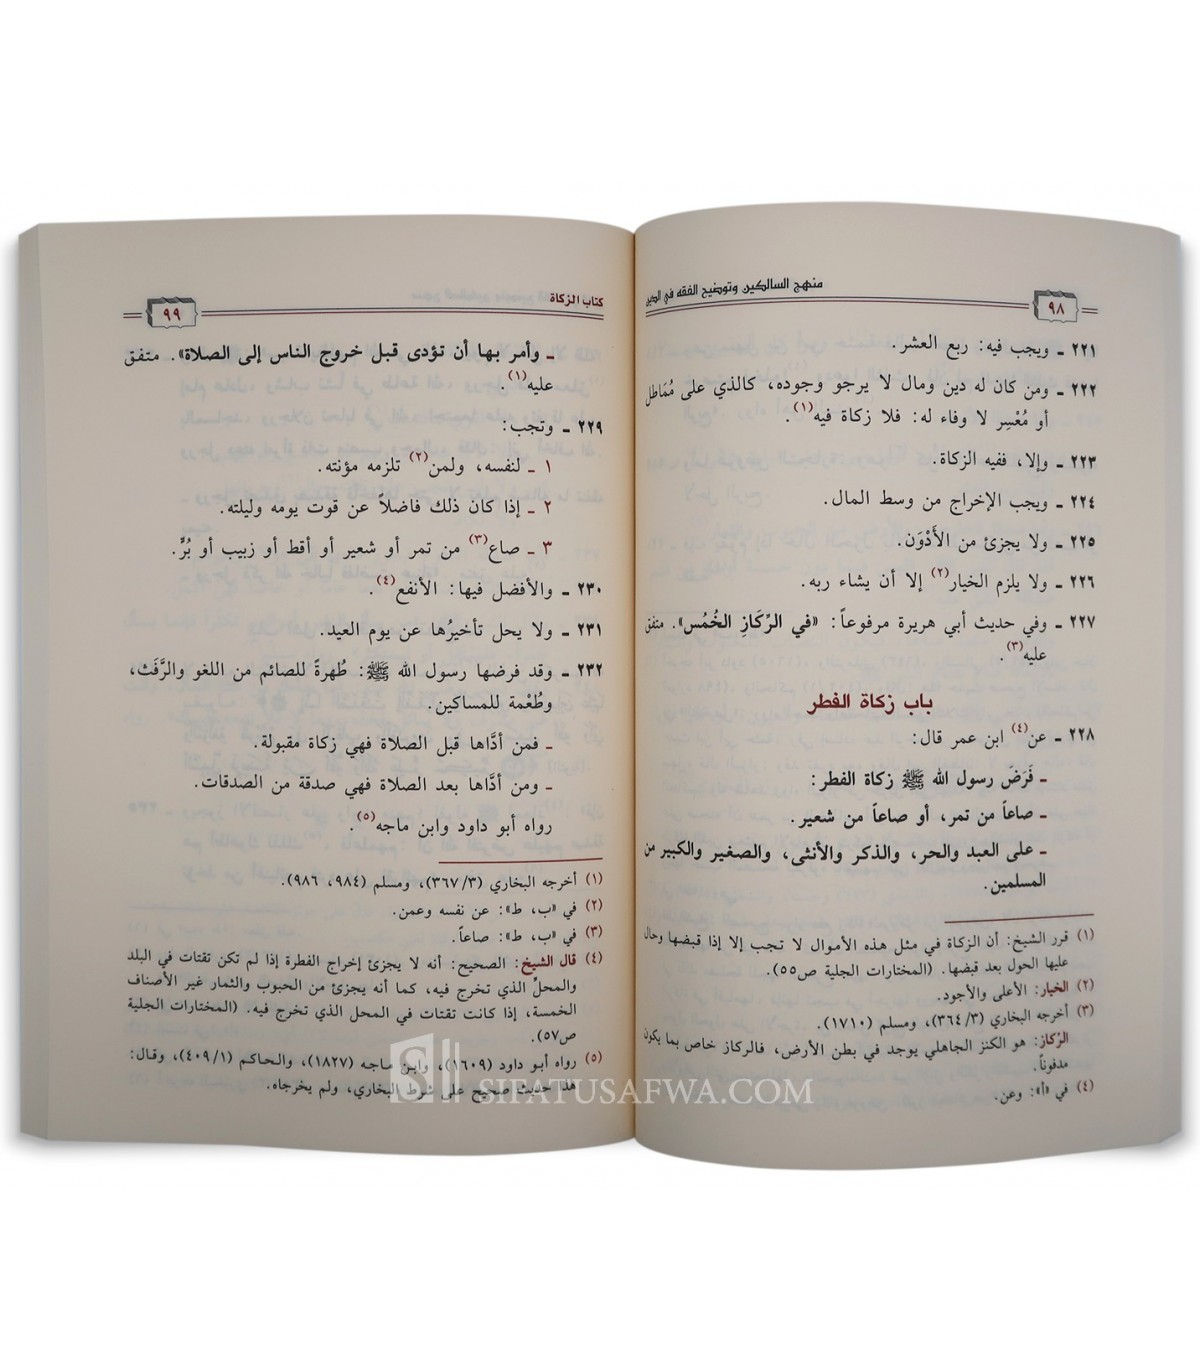 منهج السالكين وتوضيح الفقه في الدين
٩٨
٢٢١ ـ ويجب فيه: ربع العشر.
٢٢٢ ـ ومن كان له دين ومال لا يرجو وجوده، كالذي على مُمَاطل
أو مُعْسِر لا وفاء له: فلا زكاة فيه(١).
٢٢٣ ـ وإلا، ففيه الزكاة.
٢٢٤ ـ ويجب الإخراج من وسط المال.
٢٢٥ ـ ولا يجزئ من الأَدْوَن.
٢٢٦ ـ ولا يلزم الخيار(٢) إلا أن يشاء ربه.
٢٢٧ ـ وفي حديث أبي هريرة مرفوعاً: «في الرِّكَازِ الخُمُس». متفق
عليه(٣).
باب زكاة الفطر
٢٢٨ ـ عن(٤) ابن عمر قال:
ـ فَرَضَ رسول الله ﷺ زكاة الفطر:
ـ صاعاً من تمر، أو صاعاً من شعير.
ـ على العبد والحر، والذكر والأنثى، والصغير والكبير من
المسلمين.
(١) قرر الشيخ: أن الزكاة في مثل هذه الأموال لا تجب إلا إذا قبضها وحال
عليها الحول بعد قبضها. (المختارات الجلية ص٥٥).
(٢) الخيار: الأعلى والأجود.
(٣) أخرجه البخاري (٣٦٤/٣)، ومسلم (١٧١٠).
الرِّكاز: هو الكنز الجاهلي يوجد في بطن الأرض، فالركاز خاص بما يكون
مدفوناً.
(٤) في «أ»: وعن.
كتاب الزكاة
٩٩
ـ وأمر بها أن تؤدى قبل خروج الناس إلى الصلاة». متفق
عليه(١).
٢٢٩ ـ وتجب:
١ ـ لنفسه، ولمن(٢) تلزمه مؤنته.
٢ ـ إذا كان ذلك فاضلاً عن قوت يومه وليلته.
٣ ـ صاع(٣) من تمر أو شعير أو أقط أو زبيب أو بُرٍّ.
٢٣٠ ـ والأفضل فيها: الأنفع(٤).
٢٣١ ـ ولا يحل تأخيرُها عن يوم العيد.
٢٣٢ ـ وقد فرضها رسول الله ﷺ: طُهرةً للصائم من اللغو والرَّفَث،
وطُعْمة للمساكين.
ـ فمن أدَّاها قبل الصلاة فهي زكاة مقبولة.
ـ ومن أدَّاها بعد الصلاة فهي صدقة من الصدقات.
رواه أبو داود وابن ماجه(٥).
(١) أخرجه البخاري (٣٦٧/٣)، ومسلم (٩٨٤، ٩٨٦).
(٢) في «ب، ط»: عن نفسه وعمن.
(٣) في «ب، ط»: صاعاً.
(٤) قال الشيخ: الصحيح: أنه لا يجزئ إخراج الفطرة إذا لم تكن تقتات في البلد
والمحلِّ الذي تخرج فيه، كما أنه يجزئ من الحبوب والثمار غير الأصناف
الخمسة، إذا كانت تقتات في المحل الذي تخرج فيه. (المختارات الجلية
ص٥٧).
(٥) رواه أبو داود (١٦٠٩)، وابن ماجه (١٨٢٧)، والحاكم (٤٠٩/١)، وقال:
هذا حديث صحيح على شرط البخاري، ولم يخرجاه.
SIFATUSAFWA.COM